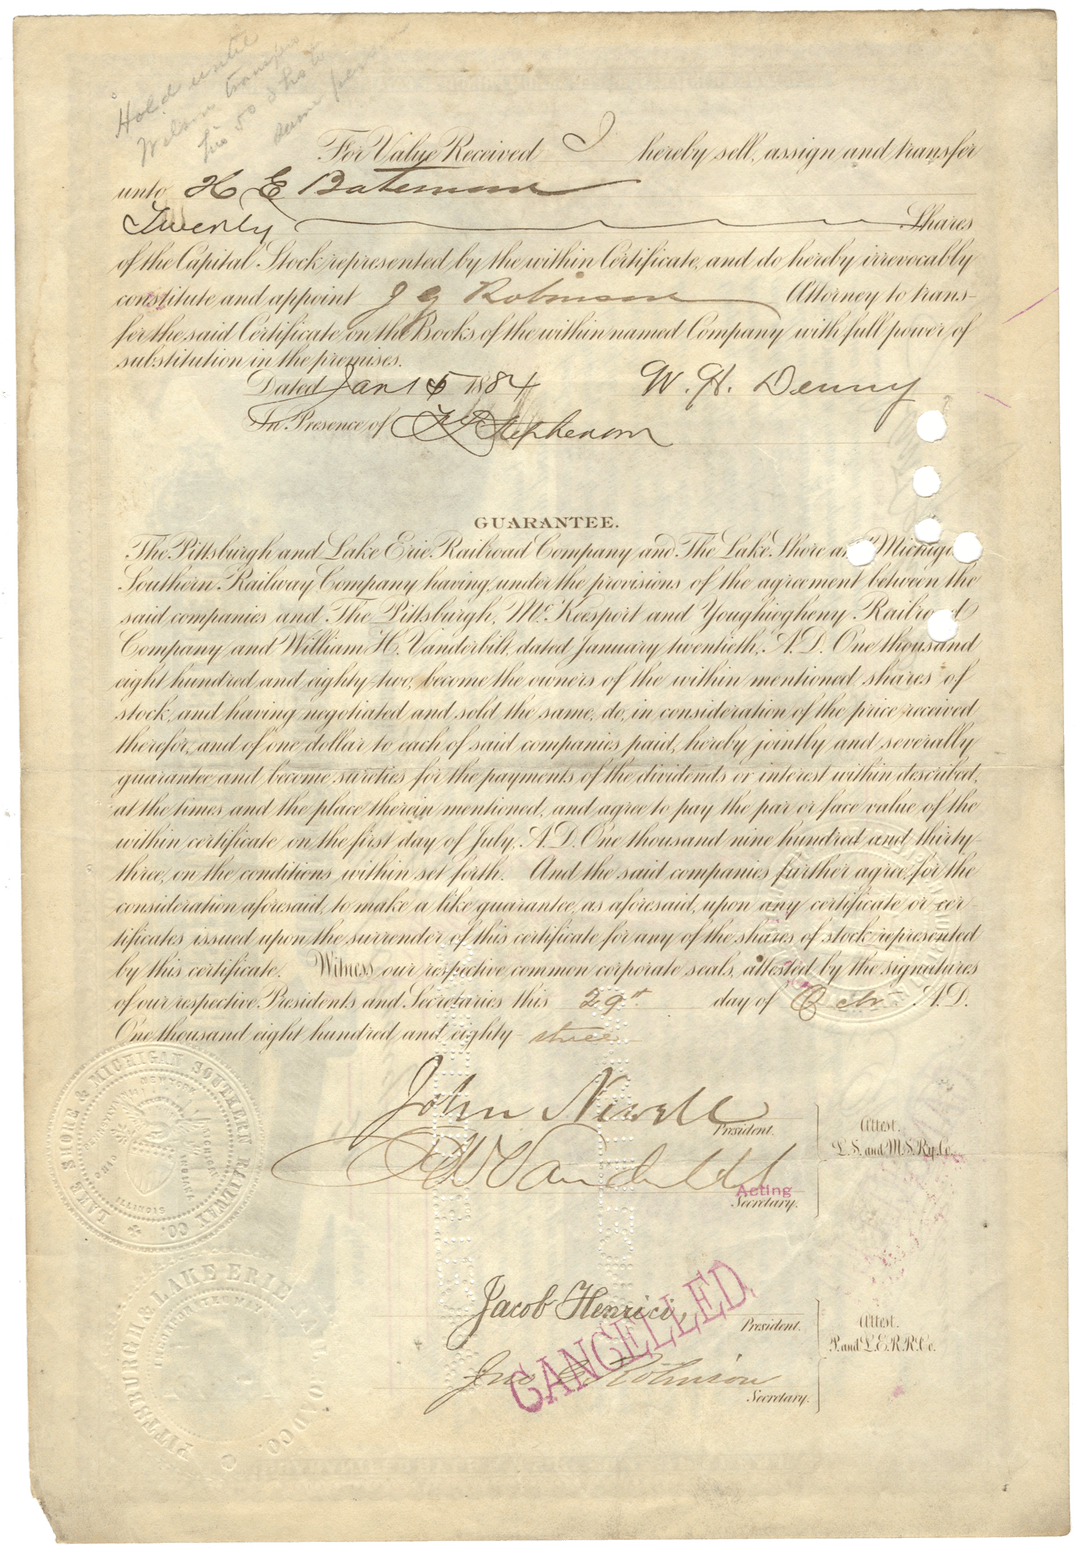 Hold until
Wilson transfers
his 50 shs to
same person
For Value Received I hereby sell, assign and transfer
unto H E Bateman
Twenty Shares
of the Capital Stock represented by the within Certificate, and do hereby irrevocably
constitute and appoint J G Robinson Attorney to trans-
fer the said Certificate on the Books of the within named Company with full power of
substitution in the premises.
Dated Jan 15 1884 W. H. Denny
In Presence of Stephenson
GUARANTEE.
The Pittsburgh and Lake Erie Railroad Company and The Lake Shore and Michigan
Southern Railway Company having, under the provisions of the agreement between the
said companies and The Pittsburgh, Mc.Keesport and Youghiogheny Railroad
Company and William H. Vanderbilt, dated January twentieth, A.D. One thousand
eight hundred and eighty-two, become the owners of the within mentioned shares of
stock, and having negotiated and sold the same, do, in consideration of the price received
therefor, and of one dollar to each of said companies paid, hereby jointly and severally
guarantee and become sureties for the payments of the dividends or interest within described,
at the times and the place therein mentioned, and agree to pay the par or face value of the
within certificate on the first day of July, A.D. One thousand nine hundred and thirty
three, on the conditions within set forth. And the said companies further agree, for the
consideration aforesaid, to make a like guarantee, as aforesaid, upon any certificate or cer-
tificates issued upon the surrender of this certificate for any of the shares of stock represented
by this certificate. Witness our respective common corporate seals, attested by the signatures
of our respective Presidents and Secretaries this 29th day of Octr. A.D.
One thousand eight hundred and eighty three
John Newell
President.
Attest.
L.S. and M.S. Ry. Co.
Vanderbilt
Acting
Secretary.
LAKE SHORE & MICHIGAN SOUTHERN RAILWAY CO.
ILLINOIS
OHIO
PITTSBURGH & LAKE ERIE
Jacob Henrici,
President.
Attest.
P. and L.E.R.R. Co.
CANCELLED
Jno G Robinson
Secretary.